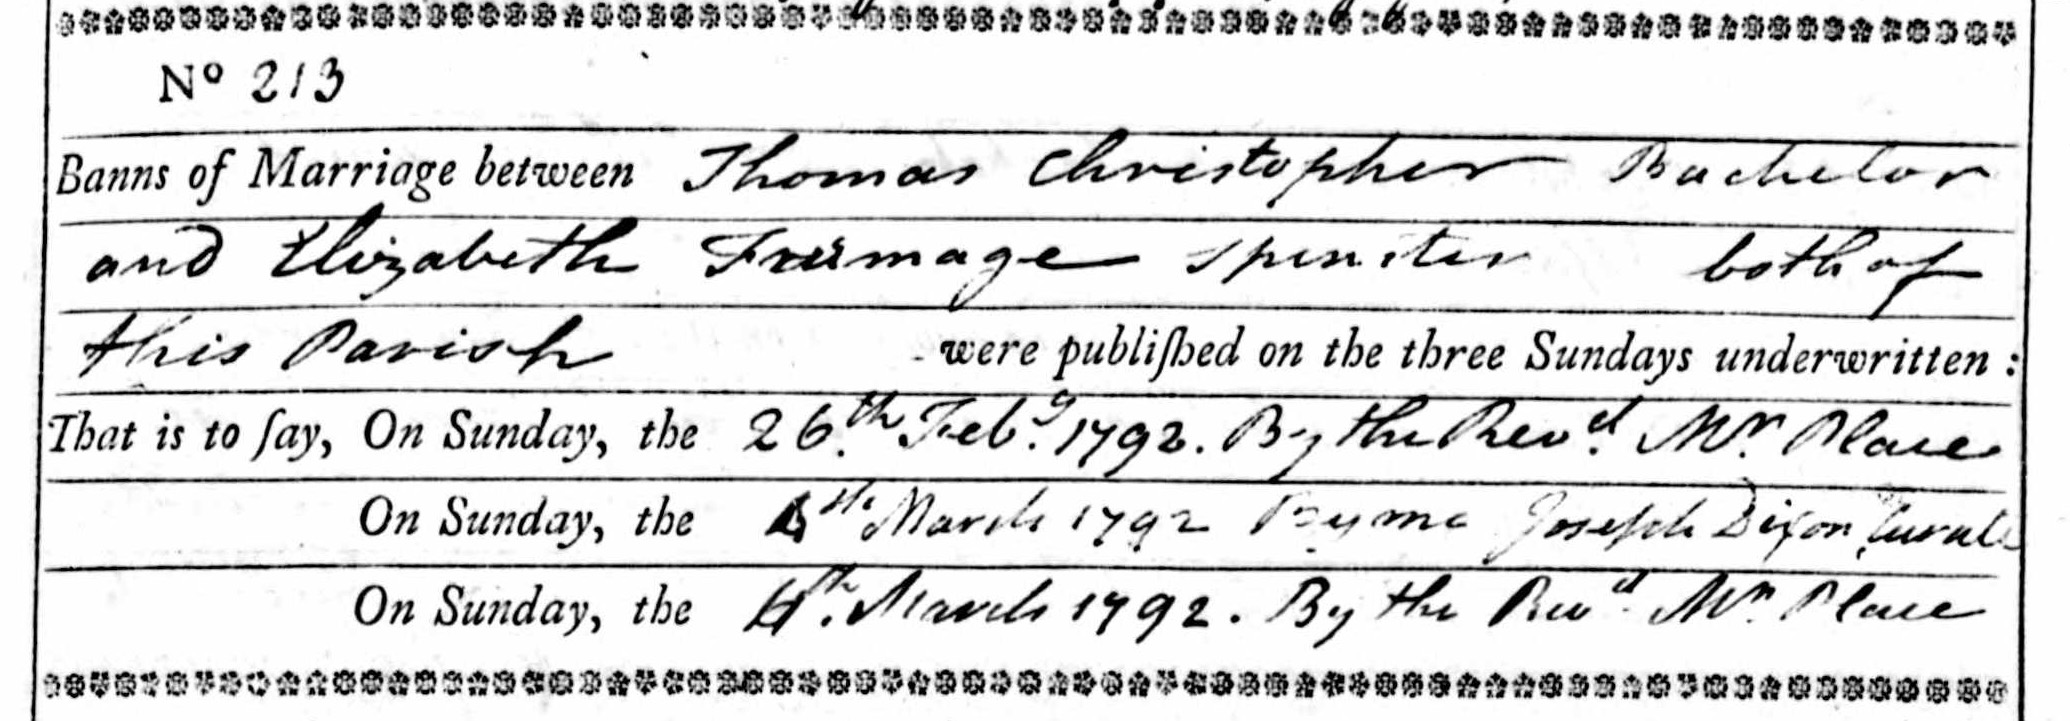 No 213
Banns of Marriage between Thomas Christopher Bachelor
and Elizabeth Firmage Spinster both of
this Parish were publiſhed on the three Sundays underwritten :
That is to ſay, On Sunday, the 26.th Feb.y 1792. By the Revd. Mr. Place
On Sunday, the 4th March 1792 By me Joseph Dixon, Curate
On Sunday, the 4th. March 1792. By the Revd. Mr. Place